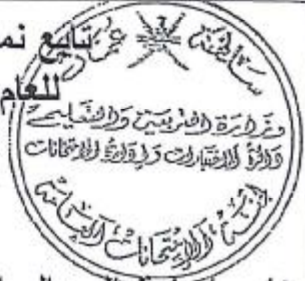 تابع نم
للعام
سلطنة عمان
وزارة التربية والتعليم
دائرة الاختبارات وإدارة الامتحانات
لجنة الامتحانات العامة